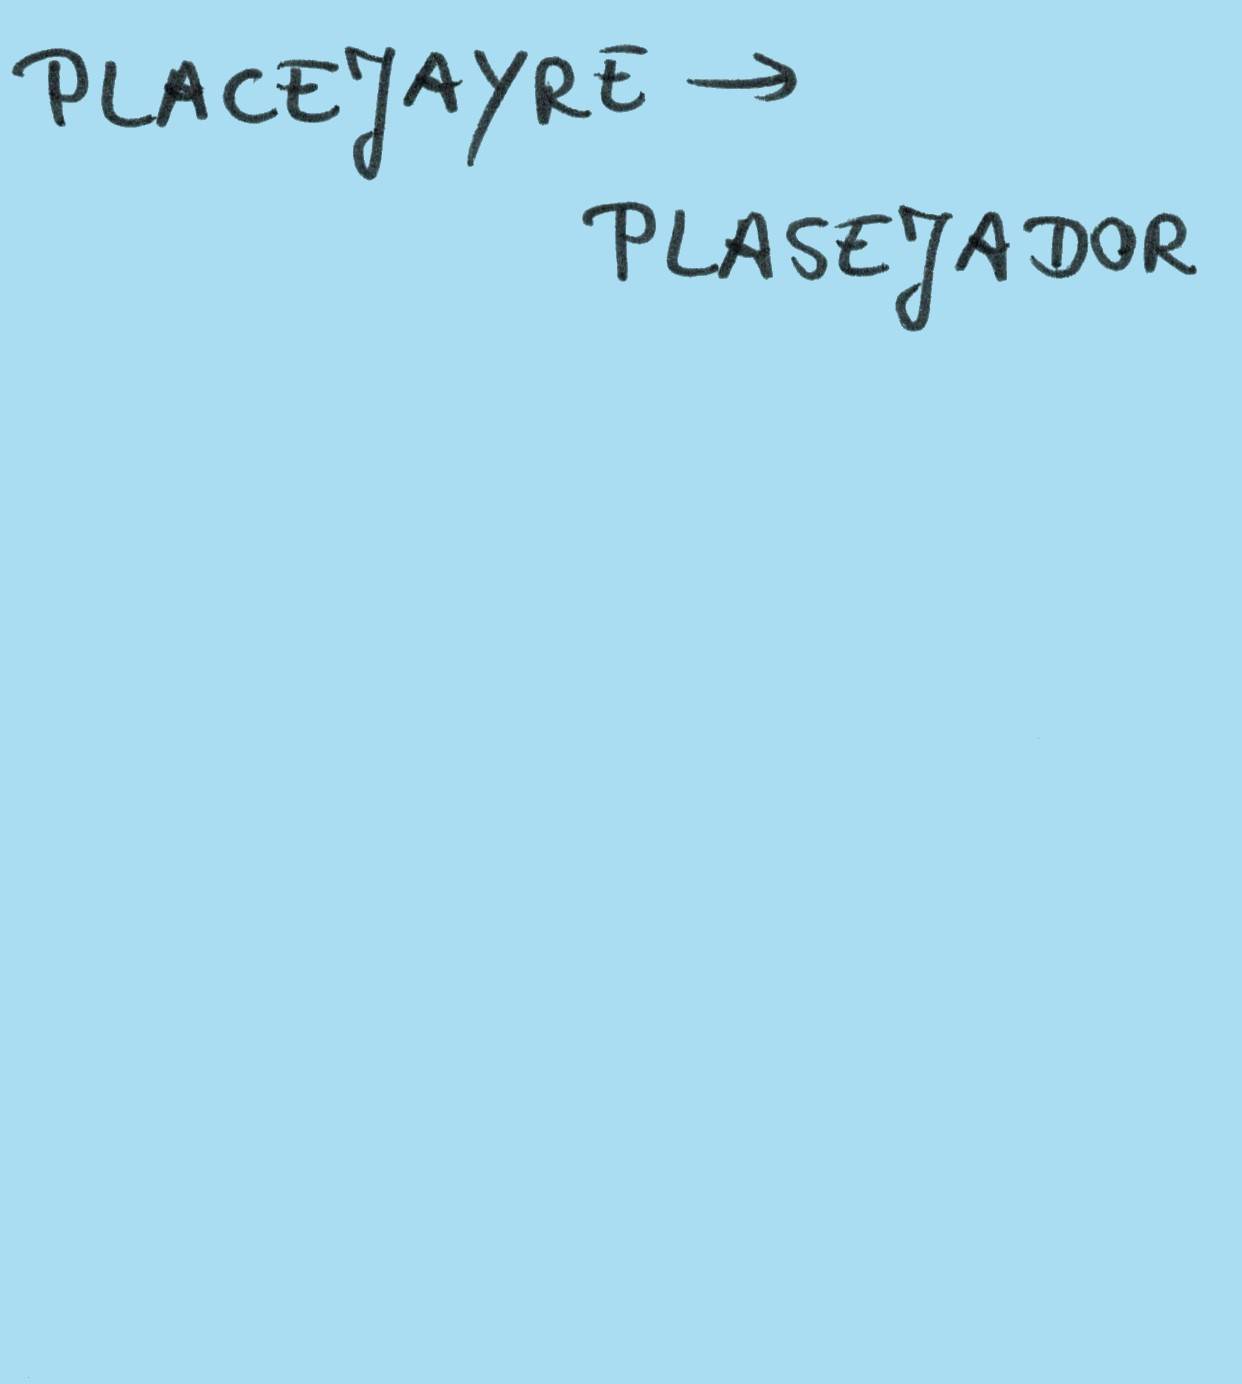 PLACEJAYRE →
PLASEJADOR